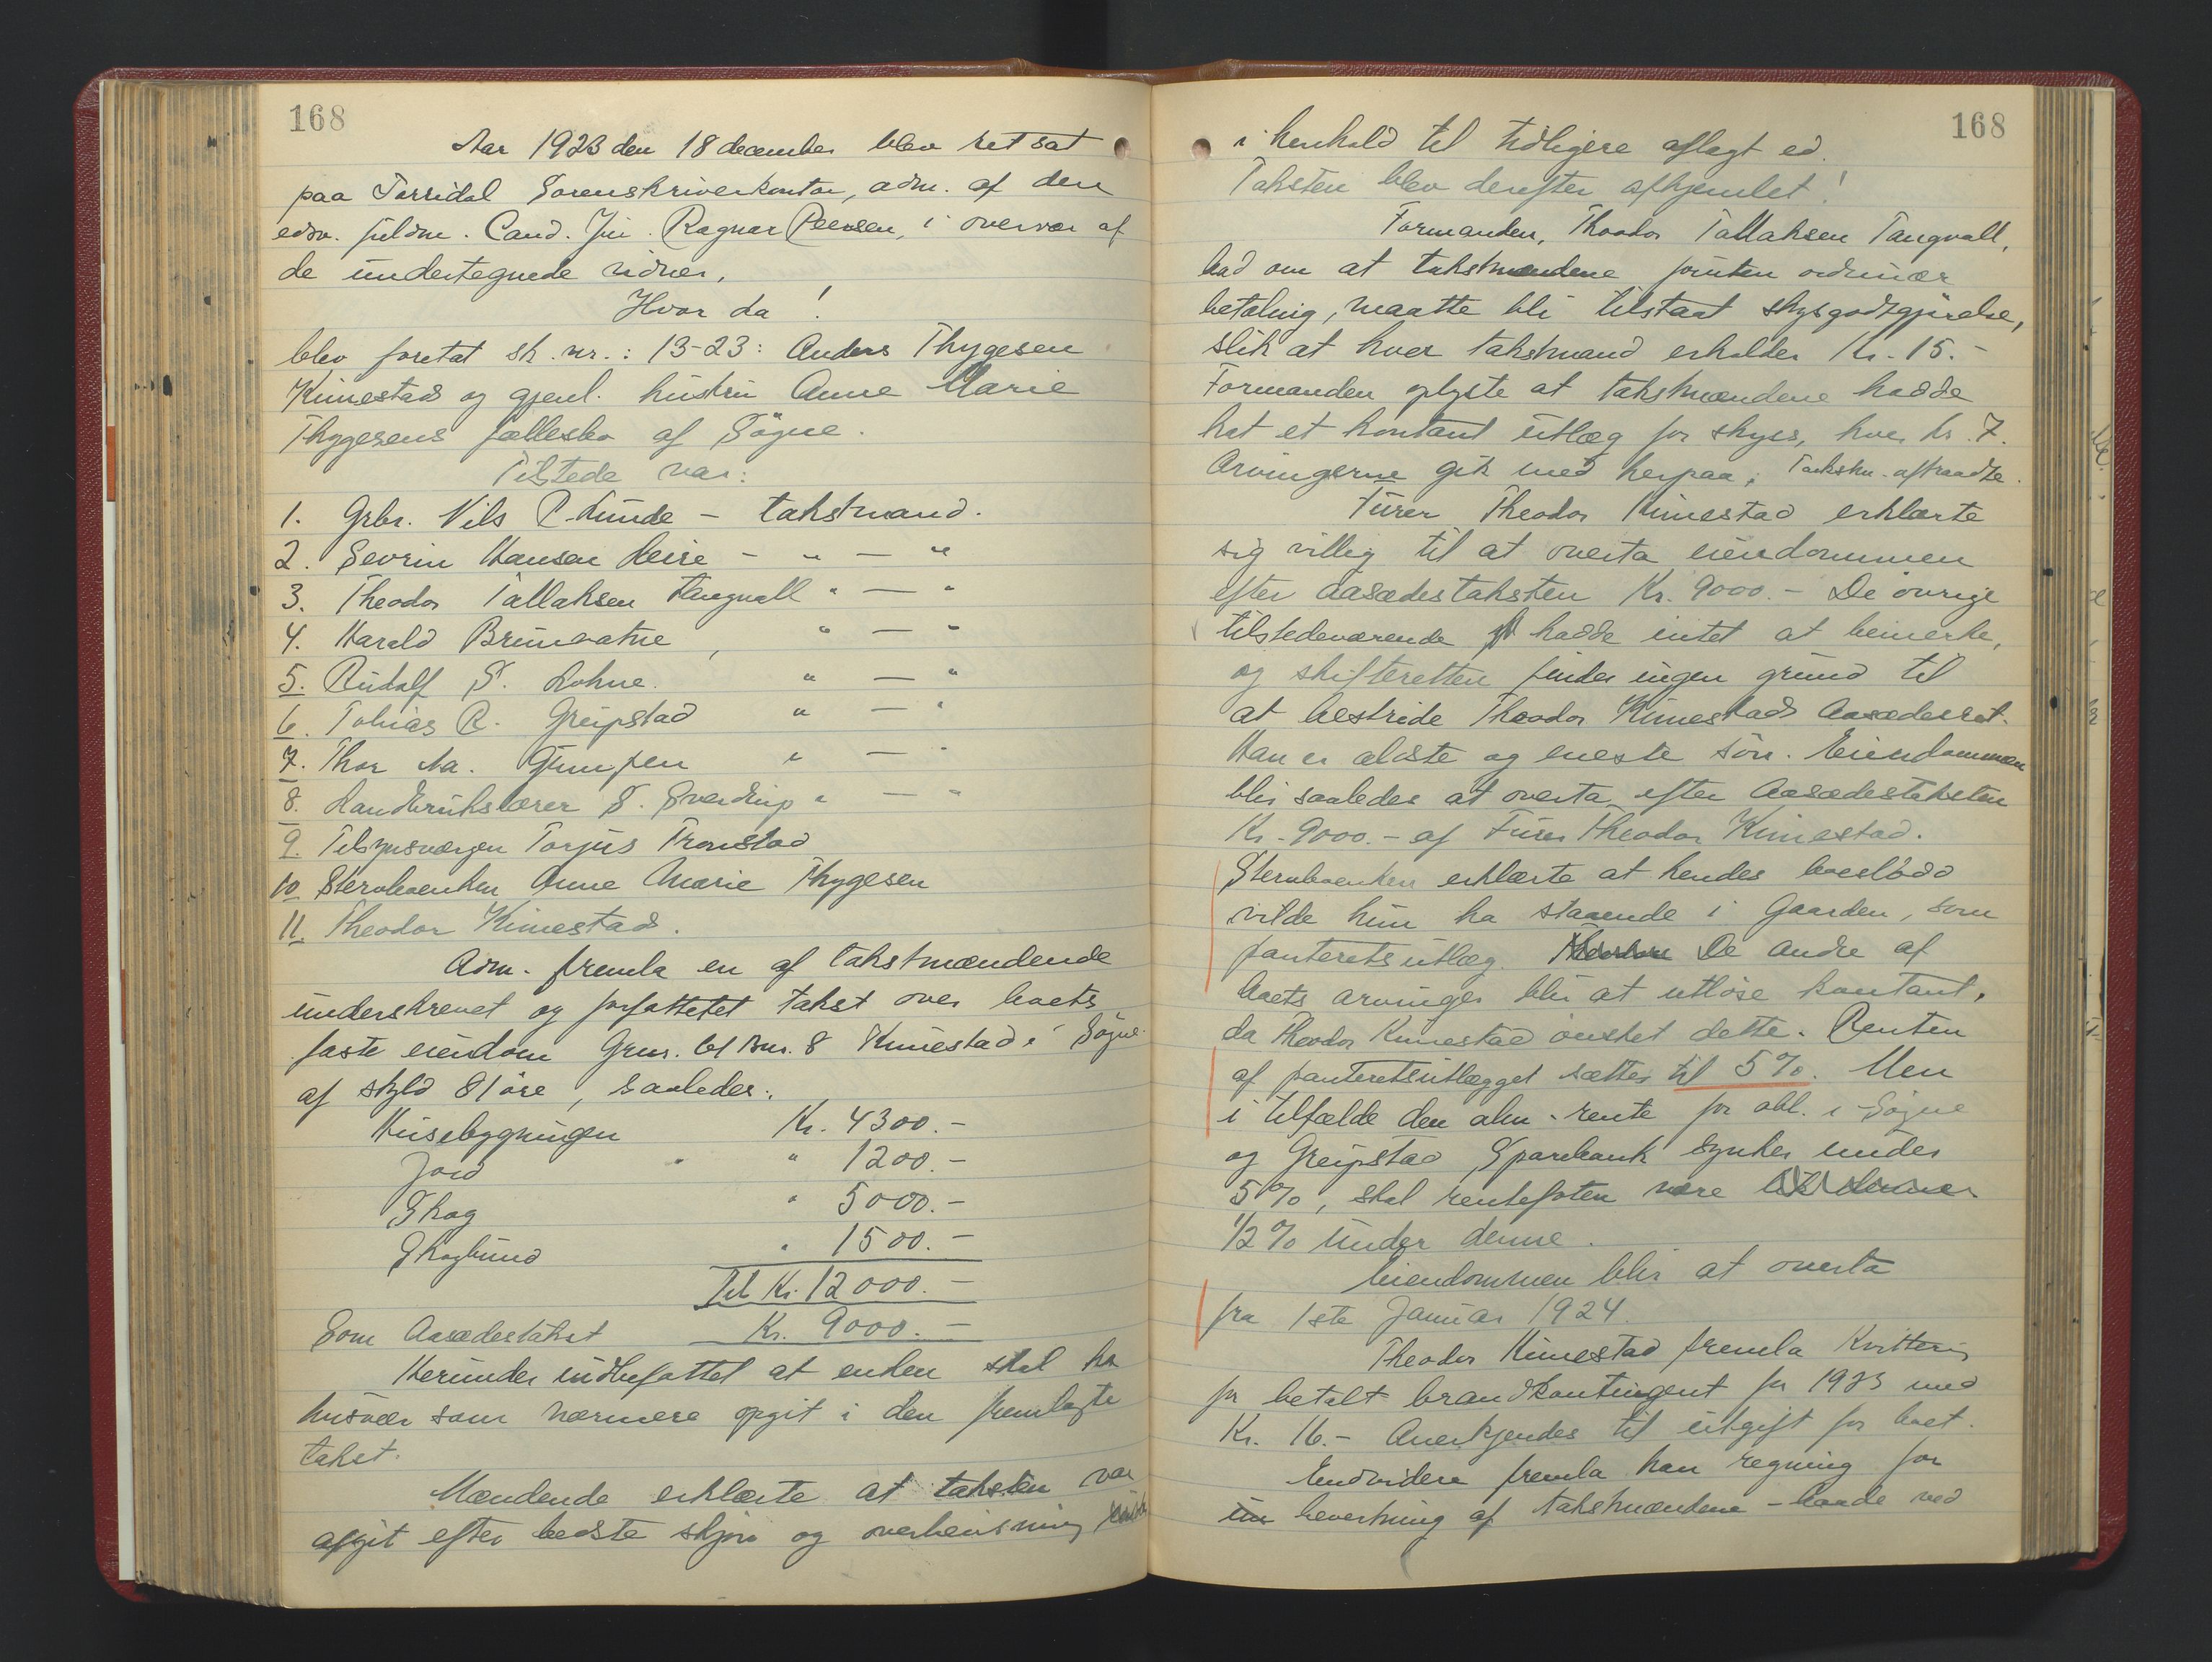 168
Aar 1923 den 18 december blev ret sat
paa Torridal Sorenskriverkontor, adm. af den
edsv. fuldm. Cand. Jur. Ragnar Peersen, i overvær af
de undertegnede vidner,
Hvor da!
blev foretat sk. nr.: 13-23: Anders Thygesen
Kimestad og gjenl. hustru Anne Marie
Thygesens fællesbo af Søgne.
Tilstede var:
1. Grbr. Nils P. Lunde - takstmand.
2. Sevrin Hansen Leire - " - "
3. Theodor Tallaksen Tangvall " - "
4. Harald Brunvatne, " - "
5. Rudolf S. Lohne. " - "
6. Tobias R. Greipstad " - "
7. Thor Aa. Gumpen " - "
8. Landbrukslærer S. Sverdrup " - "
9. Tilsynsværgen Torjus Tronstad
10 Stervboenken Anne Marie Thygesen
11. Theodor Kimestad.
Adm. fremla en af takstmændende
underskrevet og forfattetet takst over boets
faste eiendom Grnr. 61 Bnr. 8 Kimestad i Søgne
af skyld 81 øre, saaledes:
Husebygningen Kr. 4300.-
Jord " " 1200.-
Skog " 5000.-
Skogbund " 1500.-
Til Kr. 12000.-
Som Aasædestakst Kr. 9000.-
Herunder indbefattet at enken skal ha
husvær som nærmere opgit i den fremlagte
takst.
Mændende erklærte at taksten var
afgit efter bedste skjøn og overbevisning
168
i henhold til tidligere aflagt ed.
Taksten blev derefter afhjemlet!
Formanden, Theodor Tallaksen Tangvall,
bad om at takstmændene foruten ordinær
betaling, maatte bli tilstaat skysgodtgjørelse,
slik at hver takstmand erholder Kr. 15.-
Formanden oplyste at takstmændene hadde
hat et kontant utlæg for skyss, hver kr. 7.
Arvingerne gik med herpaa. Takstm. aftraadte.
Furer Theodor Kimestad erklærte
sig villig til at overta eiendommen
efter aasædestaksten Kr. 9000.- De øvrige
tilstedeværende hadde intet at bemerke,
og skifteretten finder ingen grund til
at bestride Theodor Kimestads Aasædesret.
Han er ældste og eneste søn. Eiendommen
blir saaledes at overta efter Aasædestaksten
Kr. 9000.- af Furer Theodor Kimestad.
Stervboenken erklærte at hendes boeslodd
vilde hun ha staaende i Gaarden, som
panteretsutlæg. De andre af
boets arvinger blir at utløse kontant,
da Theodor Kimestad ønsket dette. Renten
af panteretsutlægget sættes til 5%. Men
i tilfælde den alm. rente for obl. i Søgne
og Greipstad Sparebank synker under
5%, skal rentefoten være
1/2% under denne.
Eiendommen blir at overta
fra 1ste Januar 1924.
Theodor Kimestad fremla Kvittering
for betalt brandkontingent for 1923 med
Kr. 16.- Anerkjendes til utgift for boet.
Endvidere fremla han regning for
bevertning af takstmændene - baade ved